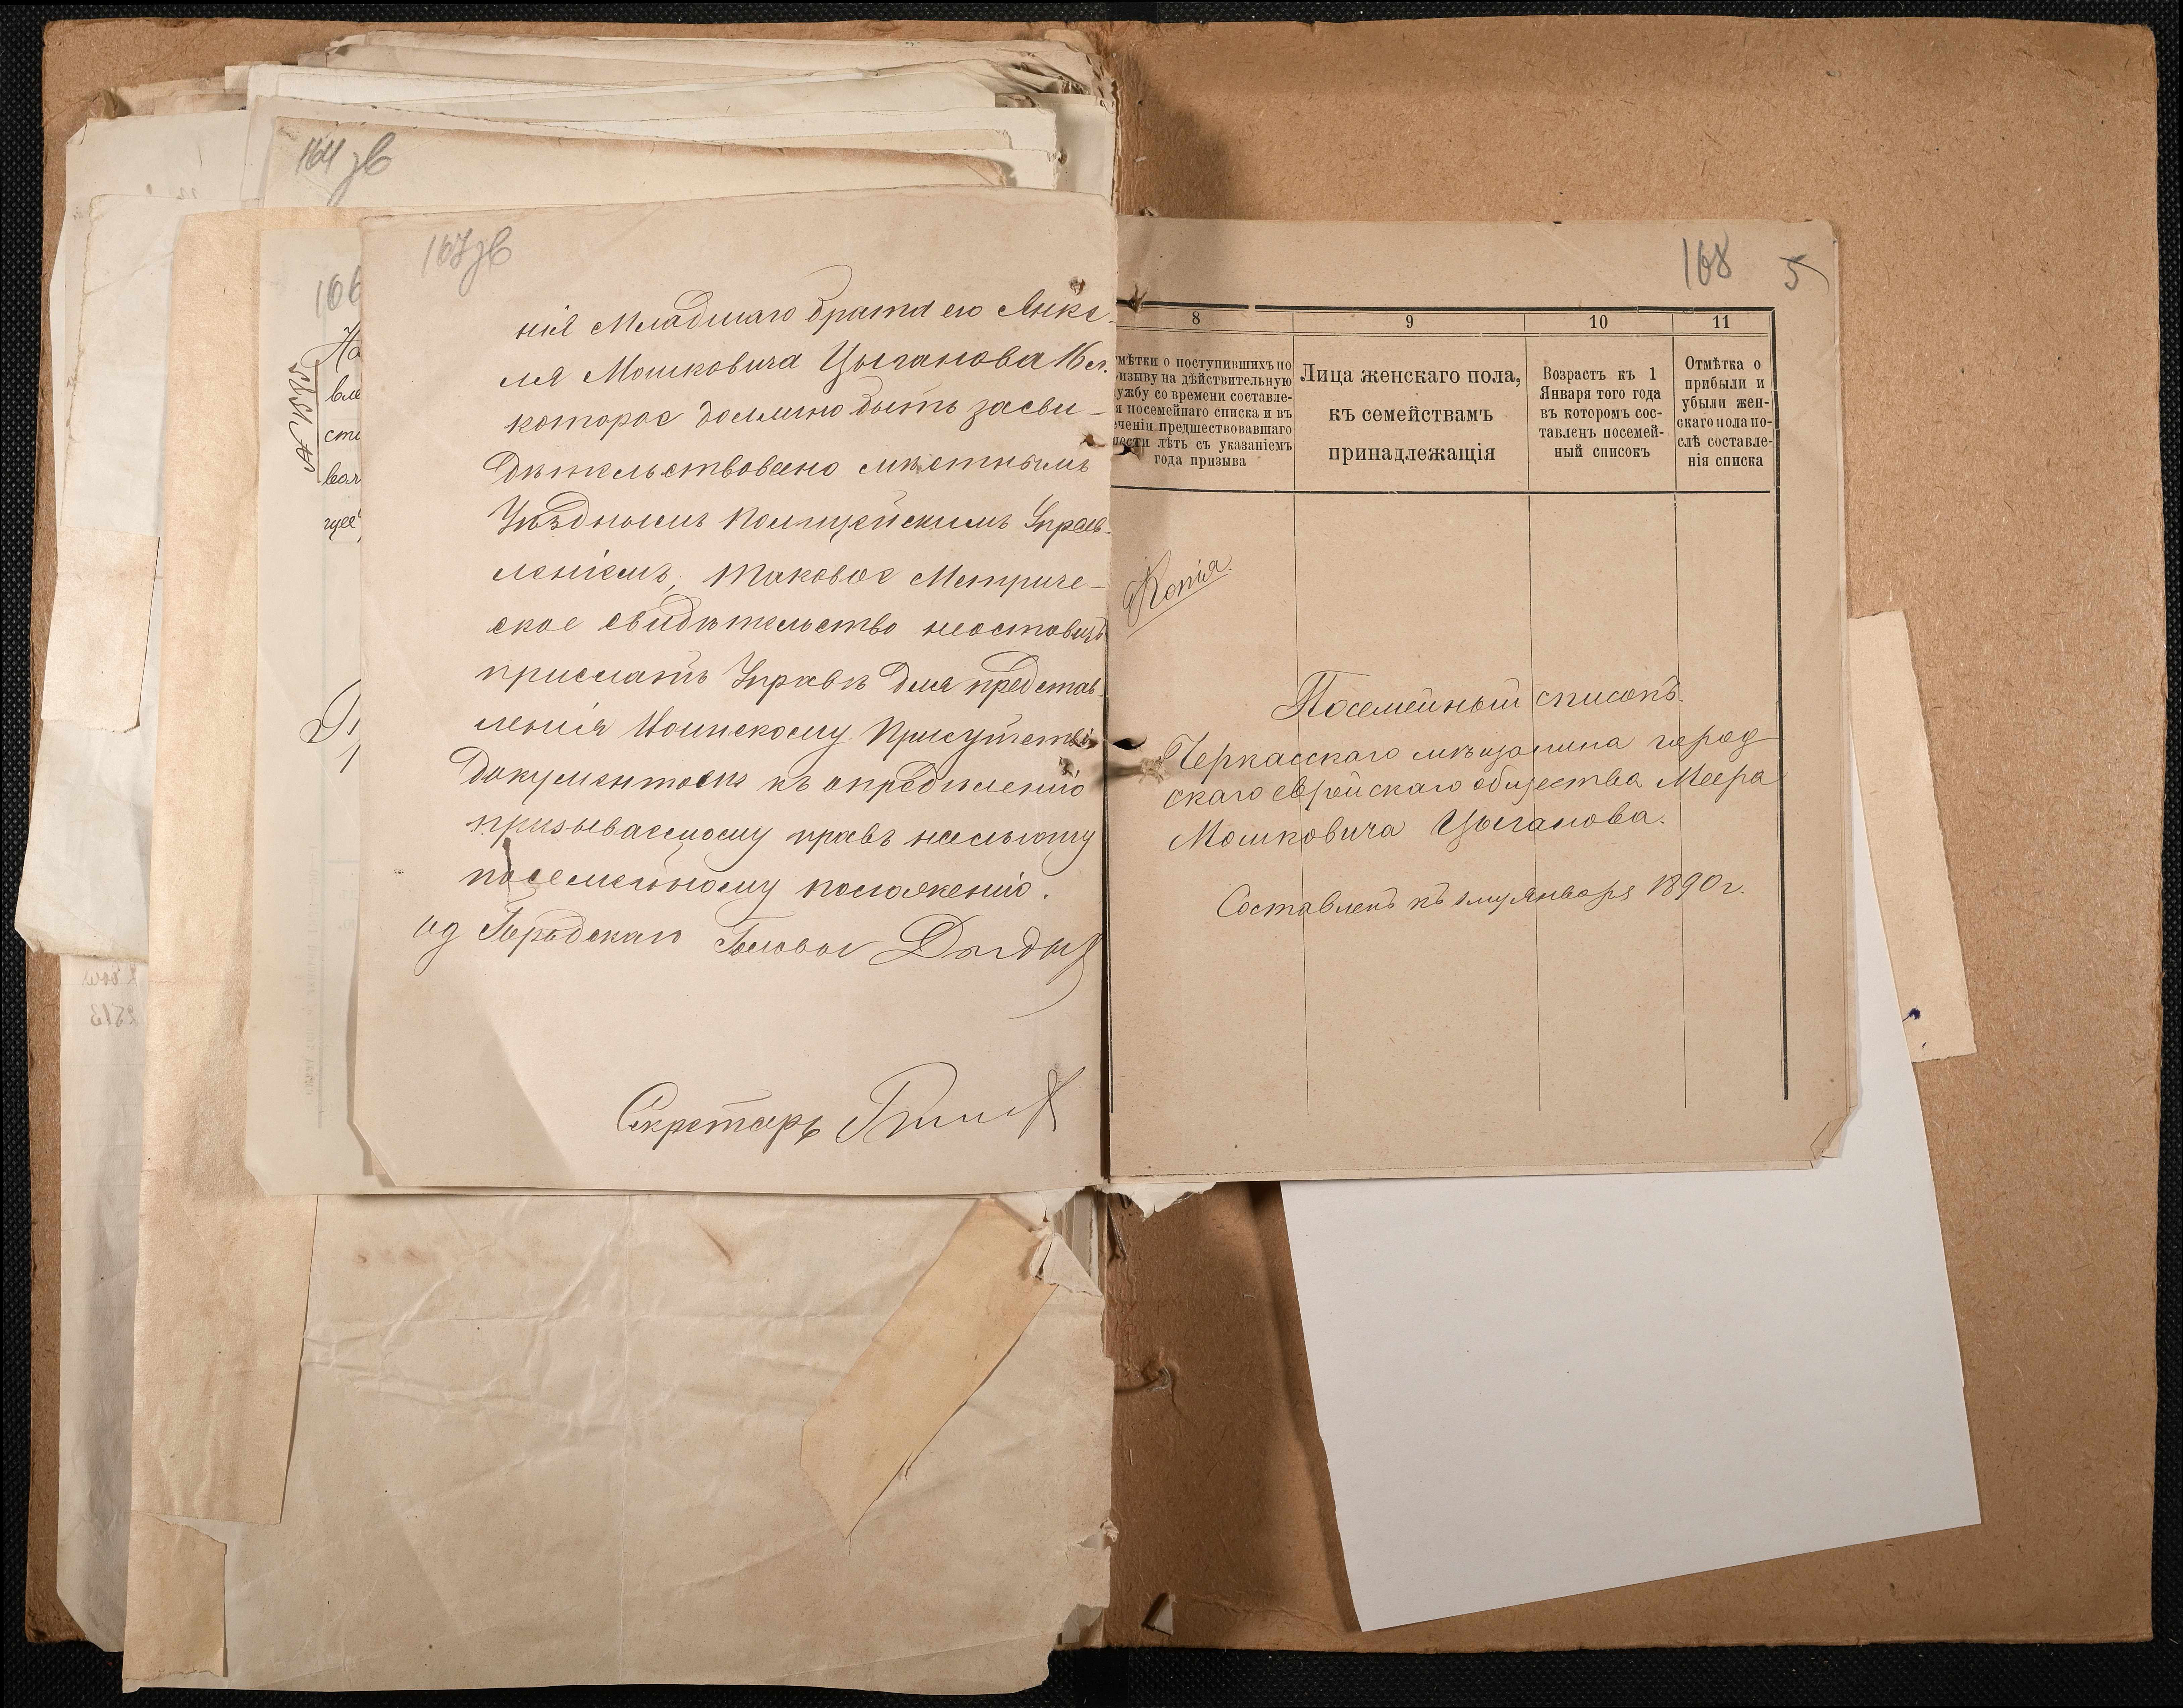 164 зв
167 зв
166
нія Младшаго брата его Янке-
ля Мошковича Цыганова 16 л.
которое должно быть засви-
дѣтельствовано мѣстнымъ
Уѣзднымъ Полицейскимъ Управ-
леніемъ, таковое Метриче-
ское свидѣтельство неоставить
прислать Управѣ для представ-
ленія Воинскому Присутствію
документомъ къ опредѣленію
призываемому правъ на льготу
по семейному положенію.
ид Городскаго Головы
Секретарь
168 5
8 9 10 11
мѣтки о поступившихъ по
изыву на дѣйствительную
ужбу со времени составле-
я посемейнаго списка и въ
ченіи предшествовавшаго
шести лѣтъ съ указаніемъ
года призыва
Лица женскаго пола,
къ семействамъ
принадлежащія
Возрастъ къ 1
Января того года
въ которомъ сос-
тавленъ посемей-
ный списокъ
Отмѣтка о
прибыли и
убыли жен-
скаго пола по-
слѣ составле-
нія списка
Копія.
Посемейный списокъ.
Черкасскаго мѣщанина город
скаго еврейскаго общества Меера
Мошковича Цыганова.
Составленъ къ 1му января 1890 г.